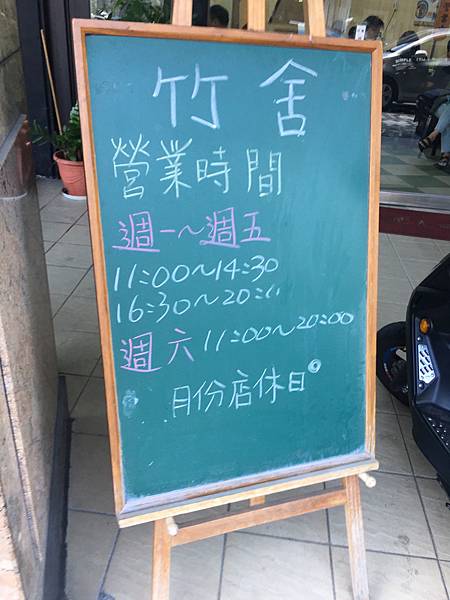 竹舍
營業時間
週一~週五
11:00~14:30
16:30~20:
週六 11:00~20:00
月份店休日